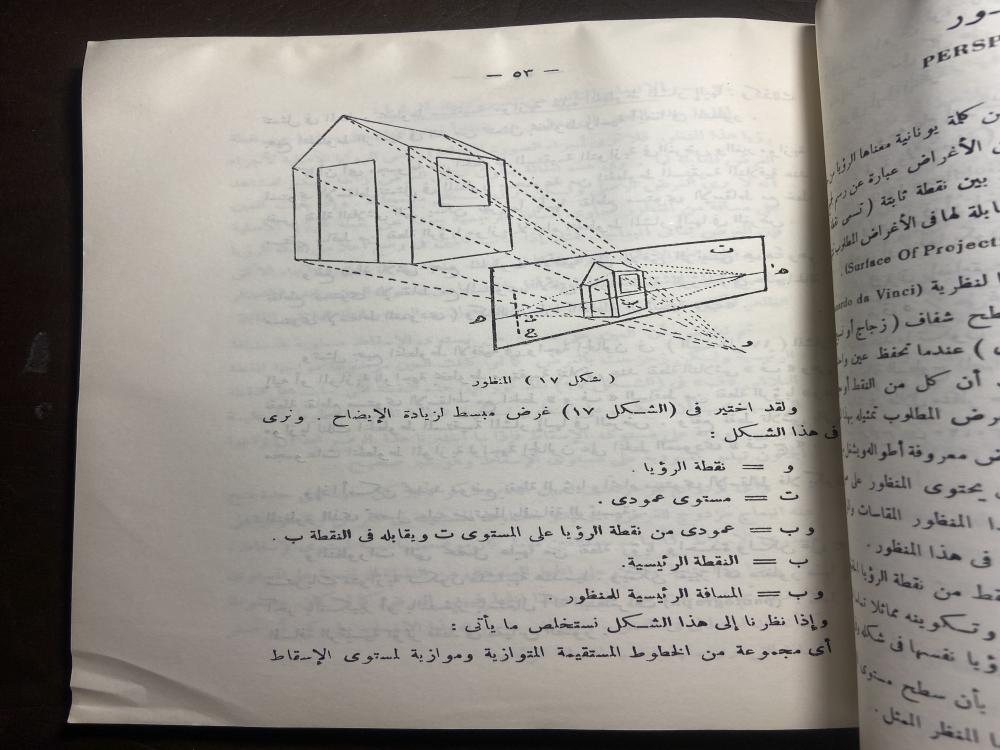 — ٥٣ —
ت
هـ'
ب
هـ
ث
ج
و
( شكل ١٧ ) المنظور
ولقد اختير فى (الشـكل ١٧) غرض مبسط لزيادة الإيضاح . ونرى
فى هذا الشـكل :
و = نقطة الرؤيا .
ت = مستوى عمودى .
و ب = عمودى من نقطة الرؤيا على المستوى ت ويقابله فى النقطة ب .
ب = النقطة الرئيسية.
و ب = المسافة الرئيسية للمنظور .
وإذا نظرنا إلى هذا الشـكل نستخلص ما يأتى :
أى مجموعة من الخطوط المستقيمة المتوازية وموازية لمستوى الإسقاط
ـور
PERSP
ن كلة يونانية معناها الرؤيا
الأغراض عبارة عن رسم
بين نقطة ثابتة ( تسمى
ابلة لها فى الأغراض المطلوب
(Surface Of Project
ا لنظرية (nardo da Vinci)
طح شفاف ( زجاج أو
) عندما تحفظ عين
أن كل من النقط أو
رض المطلوب تمثيله
معروفة أطواله ويشتغل
يحتوى المنظور على
المنظور المقاسات
فى هذا المنظور .
قط من نقطة الرؤيا
وتكوينه مماثلا
ؤيا نفسها فى شكله
بأن سطح مستوى
المنظر الممثل .